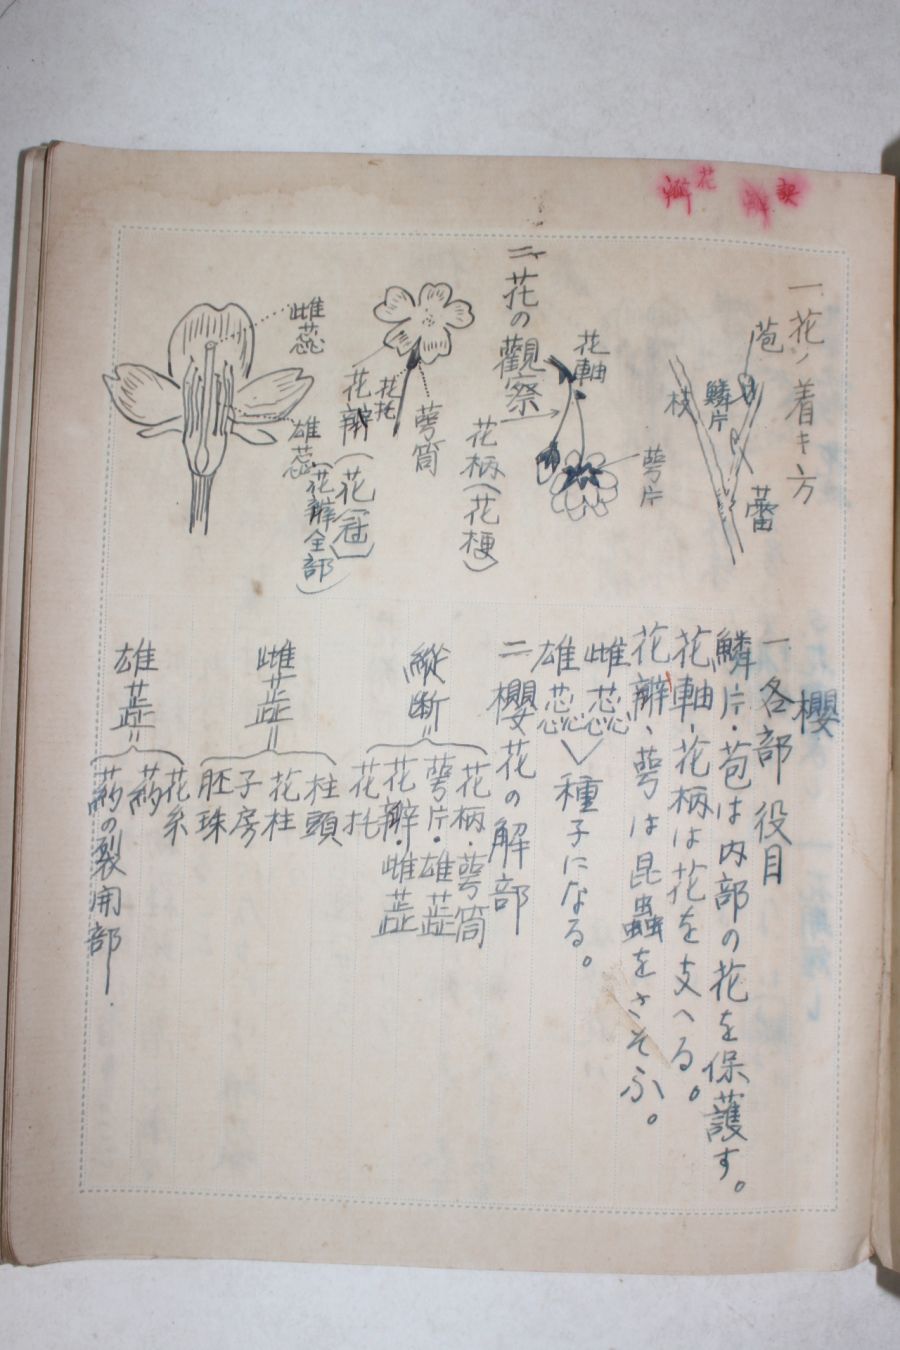 誤
花
瓣
一、花ノ着キ方
苞
鱗片
枝
蕾
花軸
萼片
花柄(花梗)
二、花の觀察
萼筒
花托
花瓣(花冠)
(花瓣全部)
雌蕊
雄蕊
櫻
一、各部 役目
鱗片・苞は内部の花を保護す。
花軸、花柄は花を支へる。
花瓣、萼は昆蟲をさそふ。
雌蕊
雄蕊
種子になる。
二、櫻花の解部
縱断=
花柄・萼筒
萼片・雄蕋
花瓣・雌蕋
花托
雌蕋=
柱頭
花柱
子房
胚珠
雄蕋=
花糸
葯
葯の裂開部